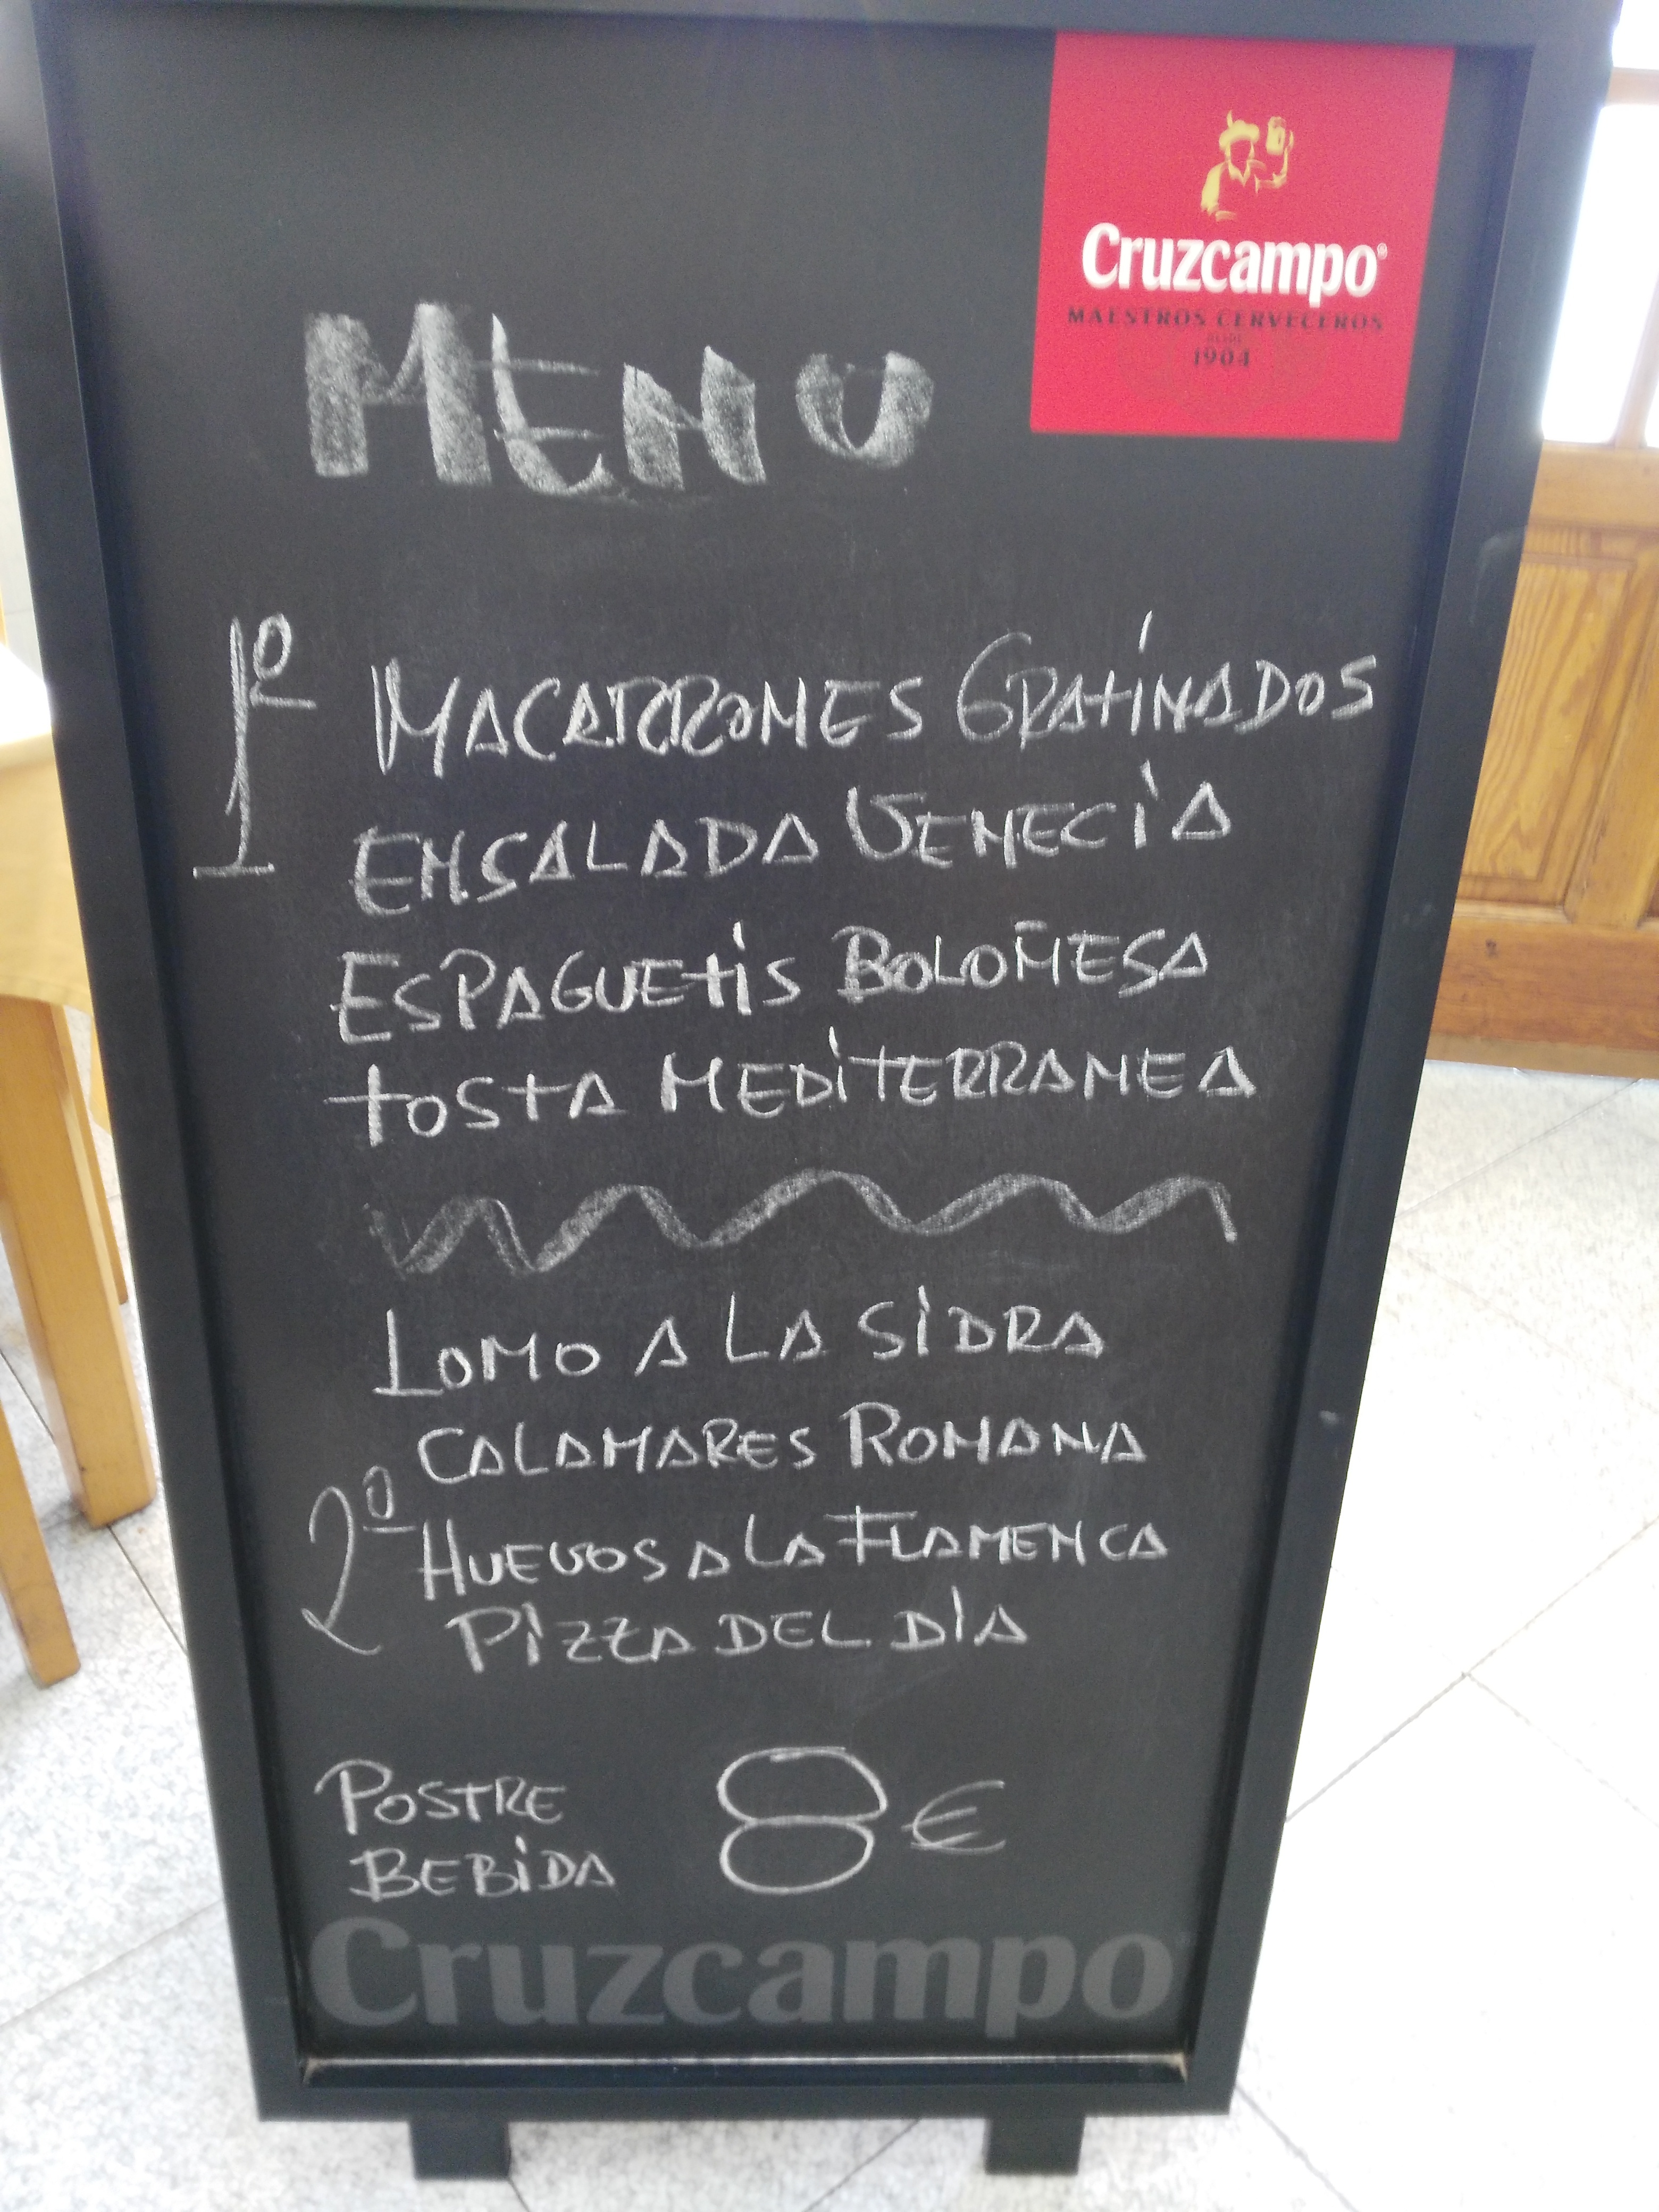 Cruzcampo®
MAESTROS CERVECEROS
DESDE
1904
MENU
1º
MACARRONES GRATINADOS
ENSALADA VENECIA
ESPAGUETIS BOLOÑESA
TOSTA MEDITERRANEA
LOMO A LA SIDRA
CALAMARES ROMANA
2º
HUEVOS A LA FLAMENCA
PIZZA DEL DIA
POSTRE
BEBIDA
8€
Cruzcampo